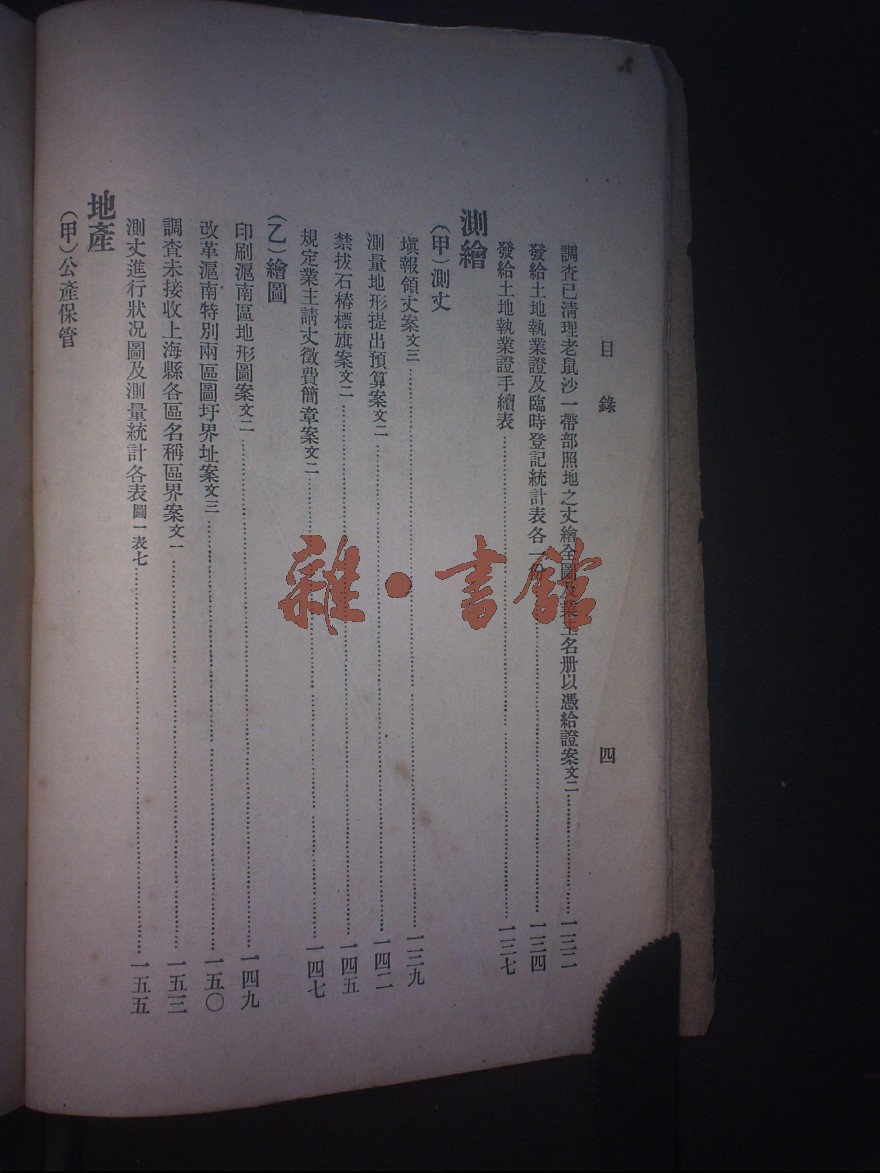 目錄
四
調查已清理老鼠沙一帶部照地之丈繪全圖及業主名册以憑給證案文二…一三二
發給土地執業證及臨時登記統計表各一份…一三四
發給土地執業證手續表…一三七
測繪
（甲）測丈
塡報領丈案文三…一三九
測量地形提出預算案文二…一四二
禁拔石樁標旗案文二…一四五
規定業主請丈徵費簡章案文二…一四七
（乙）繪圖
印刷滬南區地形圖案文二…一四九
改革滬南特別兩區圖圩界址案文三…一五〇
調查未接收上海縣各區名稱區界案文一…一五三
測丈進行狀况圖及測量統計各表圖一表七…一五五
地產
（甲）公產保管
雜·書館